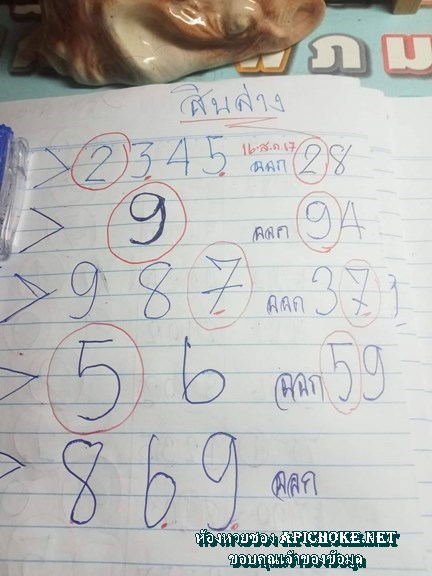 ภม
สินล่าง
> 2 3 4 5 16-ส.ค.67 ออก 28
> 9 ออก 94
> 9 8 7 ออก 37
> 5 6 ออก 59
> 8 6 9 ออก
ห้องหวยซอง APICHOKE.NET
ขอบคุณเจ้าของข้อมูล